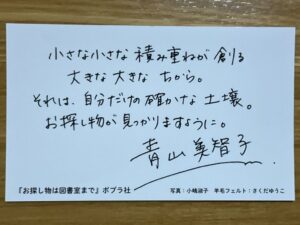 小さな小さな 積み重ねが 創る
大きな 大きな ちから。
それは、自分だけの確かな 土壌。
お探し物が見つかりますように。
青山 美智子
『お探し物は図書室まで』ポプラ社
写真：小嶋淑子　羊毛フェルト：さくだゆうこ